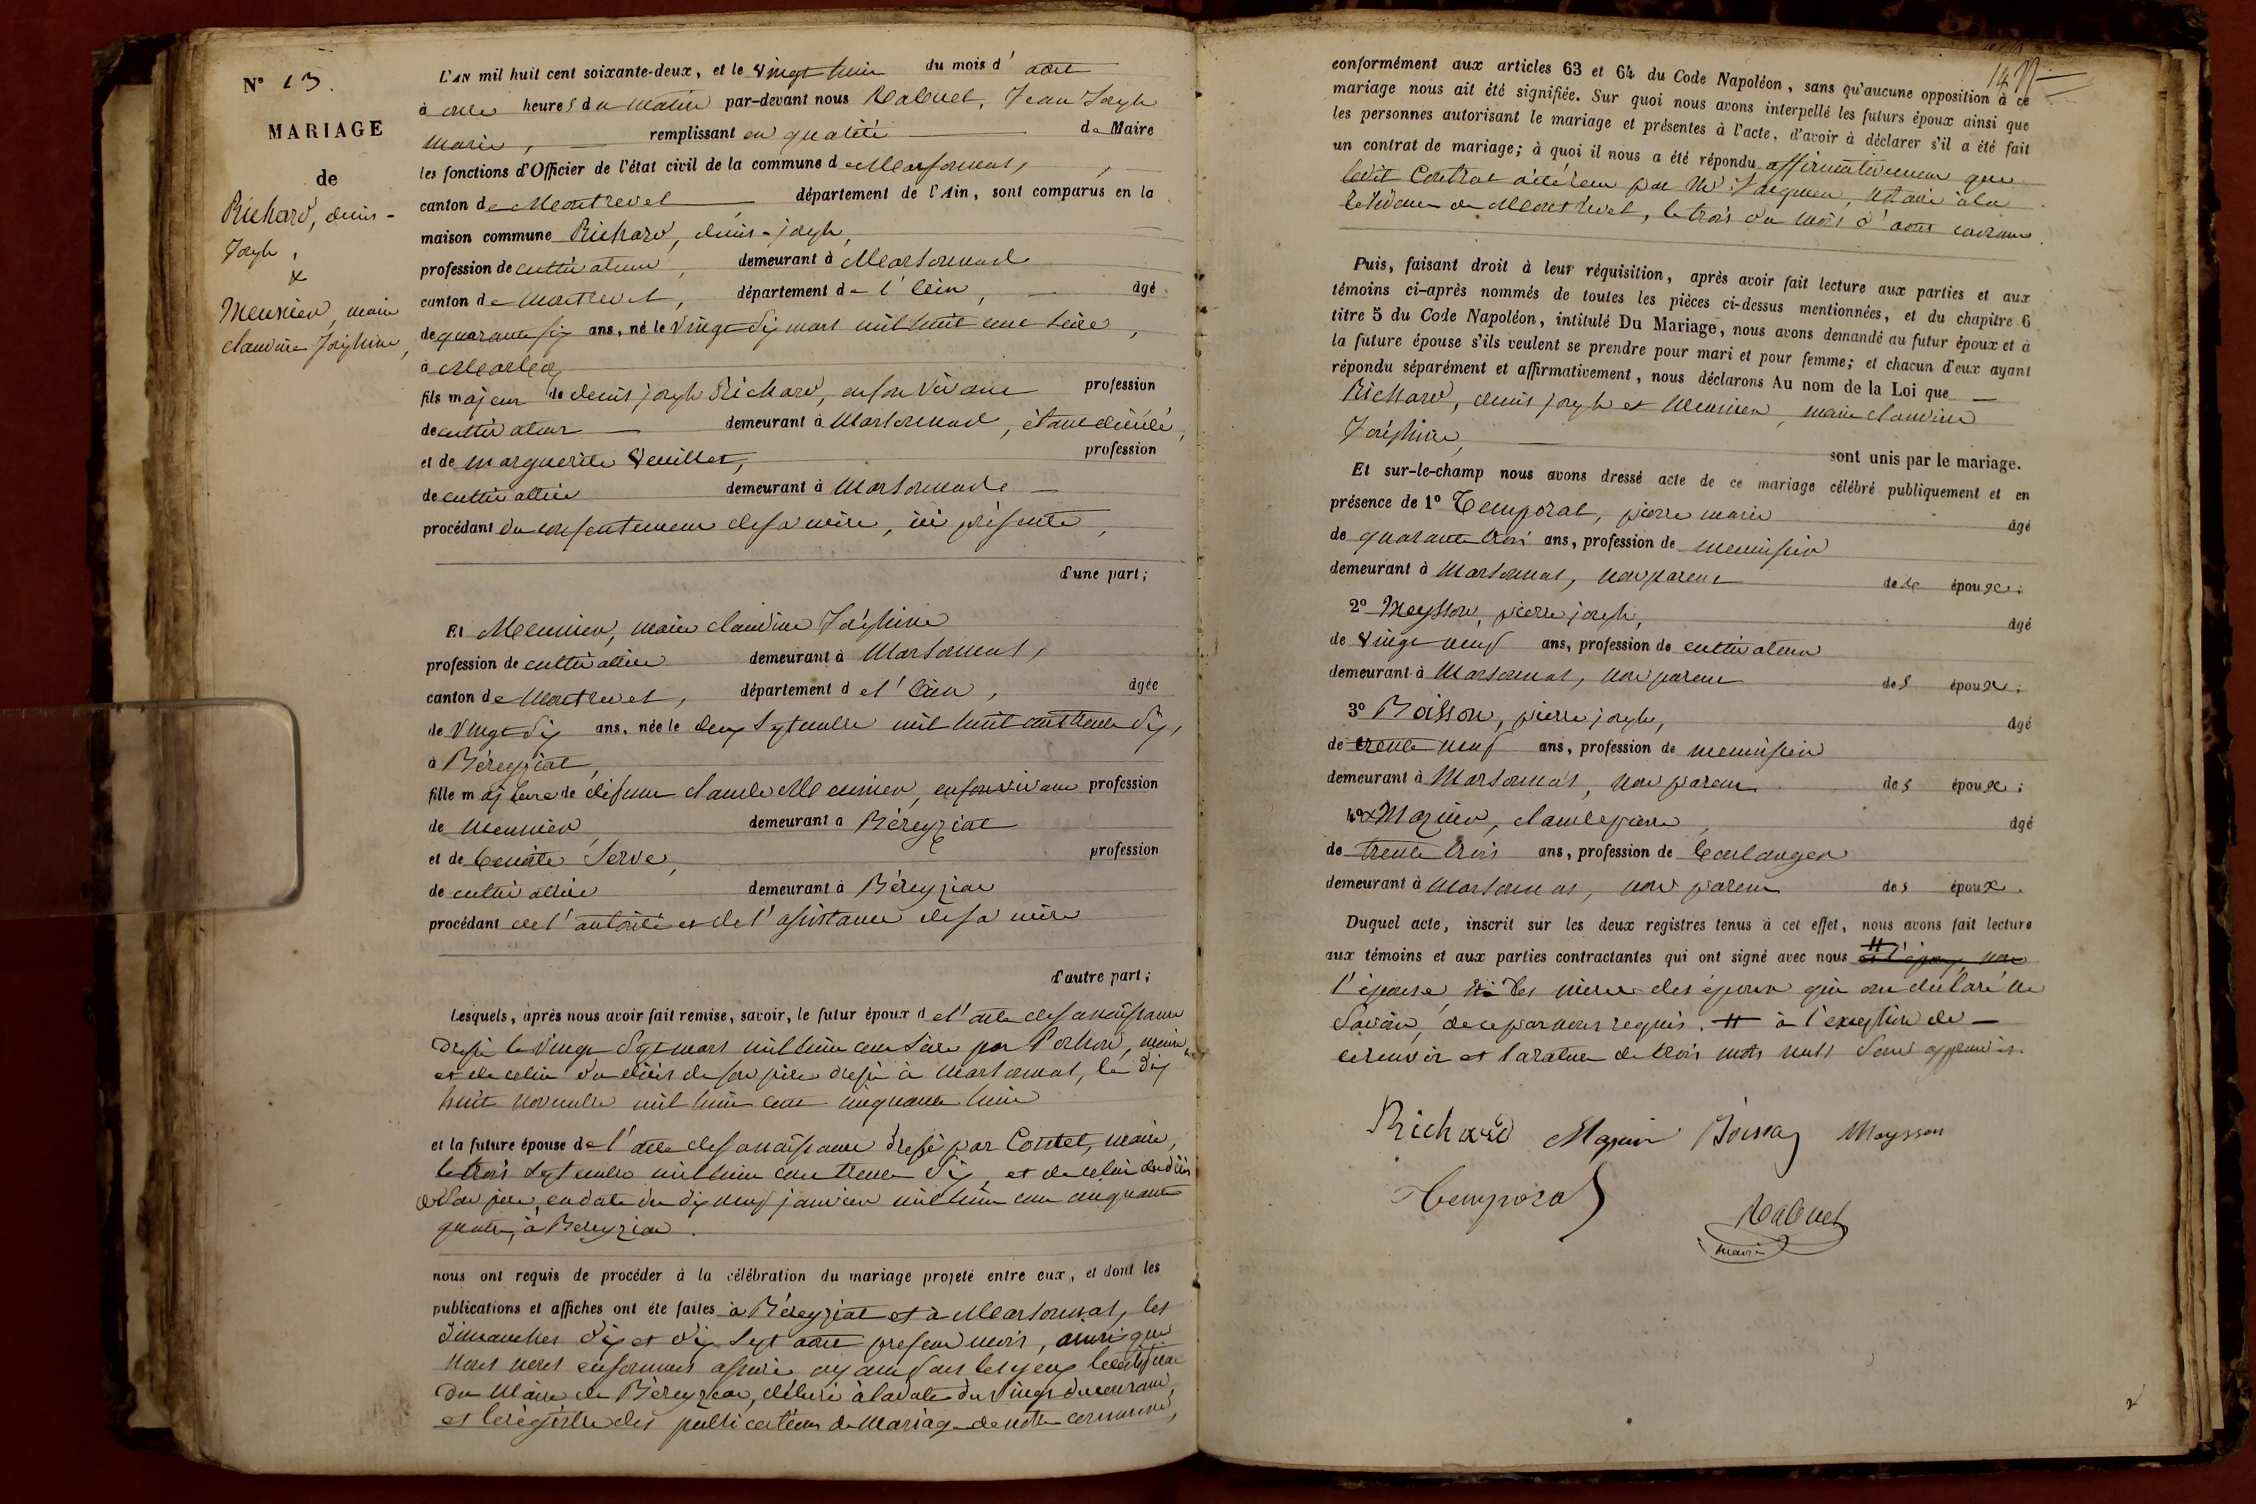 N° 13.
MARIAGE
de
Richard, denis-
Joseph,
&
Meunier, marie
claudine Joséphine,
L'AN mil huit cent soixante-deux, et le vingt huit du mois d'août
à onze heures du matin par-devant nous Rabuel, Jean Joseph
marie, remplissant en qualité de Maire
les fonctions d'Officier de l'état civil de la commune de Marsonnas,
canton de Montrevel département de l'Ain, sont comparus en la
maison commune Richard, denis-joseph,
profession de cultivateur, demeurant à Marsonnas
canton de Montrevel, département de l'Ain, âgé
de quarante six ans, né le vingt six mars mil huit cent seize,
à
fils majeur de denis joseph Richard, en son vivant profession
de cultivateur demeurant à Marsonnas, étant décédé,
et de marguerite Veuillet, profession
de cultivatrice demeurant à Marsonnas
procédant du consentement de sa mère, ici présente,
d'une part;
Et Meunier, marie claudine Joséphine
profession de cultivatrice demeurant à Marsonnas,
canton de Montrevel, département de l'Ain, âgée
de vingt six ans, née le deux septembre mil huit cent trente six,
à Béreyziat,
fille majeure de défunt claude Meunier, en son vivant profession
de meunier, demeurant à Béreyziat
et de benoite Serve, profession
de cultivatrice demeurant à Béreyziat
procédant de l'autorité et de l'assistance de sa mère
d'autre part;
Lesquels, après nous avoir fait remise, savoir, le futur époux de l'acte de sa naissance
dressé le vingt sept mars mil huit cent seize par maire,
et de celui du décès de son père dressé à Marsonnas, le dix
huit novembre mil huit cent cinquante huit
et la future épouse de l'acte de sa naissance dressé par maire,
le trois septembre mil huit cent trente six, et de celui du décès
de son père, en date du dix neuf janvier mil huit cent cinquante
quatre, à Béreyziat.
nous ont requis de procéder à la célébration du mariage projeté entre eux, et dont les
publications et affiches ont été faites à Béreyziat et à Marsonnas, les
dimanches dix et dix sept août présent mois, ainsi que
nous nous en sommes assuré ayant sous les yeux le certificat
du Maire de Béreyziat, délivré à la date du vingt du courant,
et le registre des publications de Mariage de notre commune,
conformément aux articles 63 et 64 du Code Napoléon, sans qu'aucune opposition à ce
mariage nous ait été signifiée. Sur quoi nous avons interpellé les futurs époux ainsi que
les personnes autorisant le mariage et présentes à l'acte, d'avoir à déclarer s'il a été fait
un contrat de mariage; à quoi il nous a été répondu affirmativement que
ledit Contrat a été reçu par Me notaire à la
résidence de Montrevel, le trois du mois d'août courant.
Puis, faisant droit à leur réquisition, après avoir fait lecture aux parties et aux
témoins ci-après nommés de toutes les pièces ci-dessus mentionnées, et du chapitre 6
titre 5 du Code Napoléon, intitulé Du Mariage, nous avons demandé au futur époux et à
la future épouse s'ils veulent se prendre pour mari et pour femme; et chacun d'eux ayant
répondu séparément et affirmativement, nous déclarons Au nom de la Loi que
Richard, denis joseph et Meunier, marie claudine
Joséphine, sont unis par le mariage.
Et sur-le-champ nous avons dressé acte de ce mariage célébré publiquement et en
présence de 1° Temporal, pierre marie âgé
de quarante trois ans, profession de menuisier
demeurant à Marsonnas, non parent de époux;
2° Meysson, pierre joseph, âgé
de vingt neuf ans, profession de cultivateur
demeurant à Marsonnas, non parent des époux;
3° Boisson, pierre joseph, âgé
de trente neuf ans, profession de menuisier
demeurant à Marsonnas, non parent des époux;
4° Mazuir, claude pierre, âgé
de trente trois ans, profession de boulanger
demeurant à Marsonnas, non parent des époux.
Duquel acte, inscrit sur les deux registres tenus à cet effet, nous avons fait lecture
aux témoins et aux parties contractantes qui ont signé avec nous et l'époux, non
l'épouse, ni les mères des époux qui ont déclaré ne
savoir, de ce par nous requis. à l'exception de
ce renvoi et la rature de trois mots nuls sont approuvés.
Richard Mazuir Boisson Meysson
Temporal
Rabuel
maire